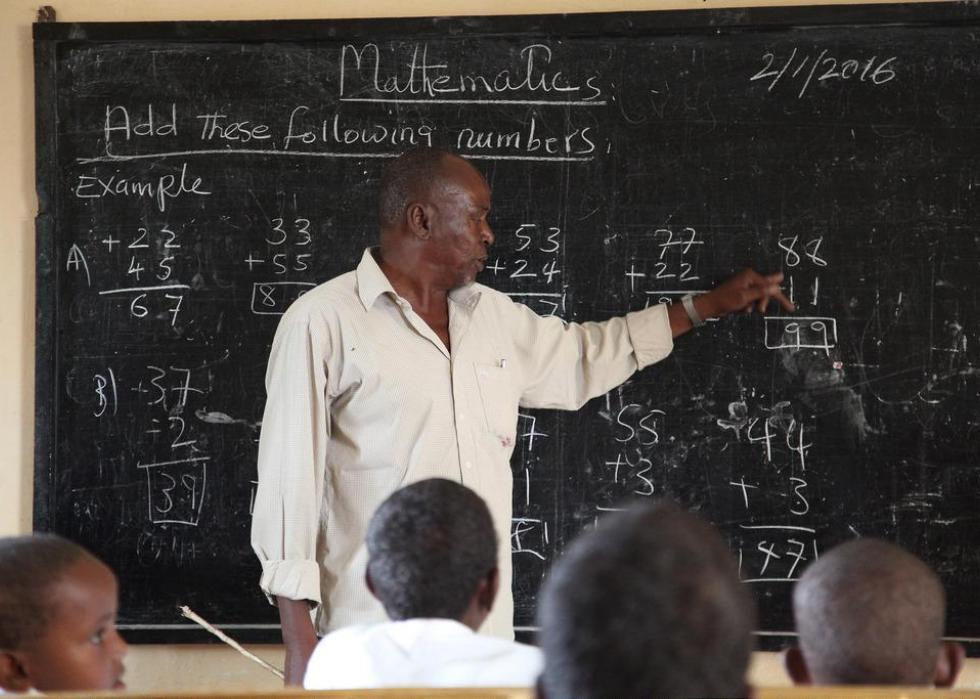 Mathematics
2/1/2016
Add these following numbers
Example
A) +22 33 53 77 88
45 +55 +24 +22 11
67 8 7 99
B) +37 7 55 44
2 1 +3 + 3
39 47